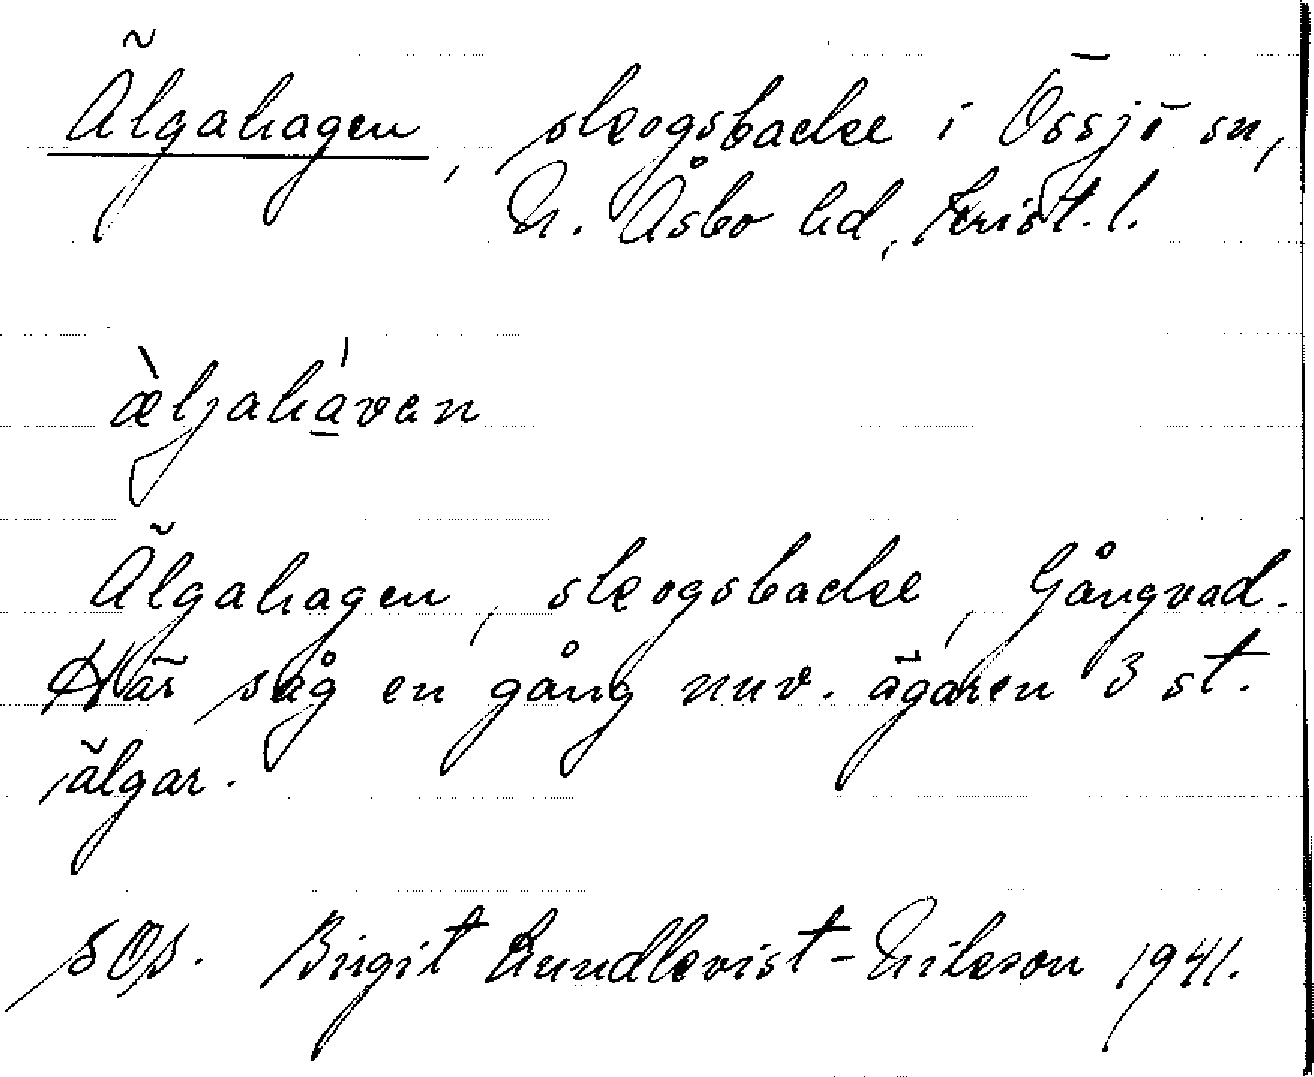 Älgahagen, skogsbacke i Össjö sn,
N. Åsbo hd, Krist. l.
æ̀ljahá̱van
Älgahagen, skogsbacke, Gångvad.
Här såg en gång nuv. ägaren 3 st.
älgar.
sOs. Birgit Lundkvist-Nilsson 1941.